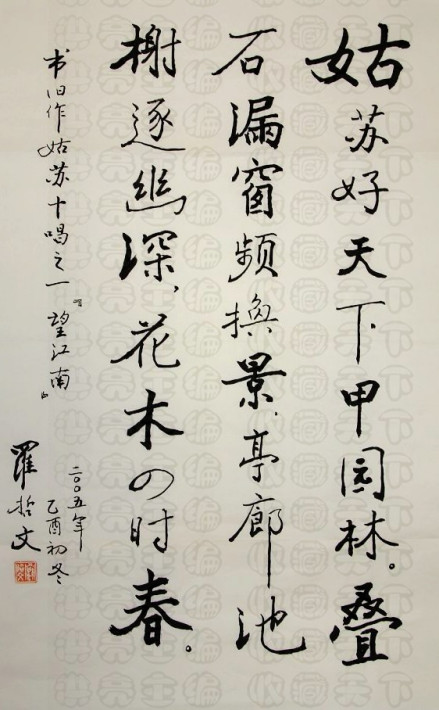 姑苏好天下甲园林。叠
石漏窗频換景,亭廊池
榭逐幽深,花木四时春。
书旧作姑苏十唱之一『望江南』
二〇〇五年
乙酉初冬
羅哲文